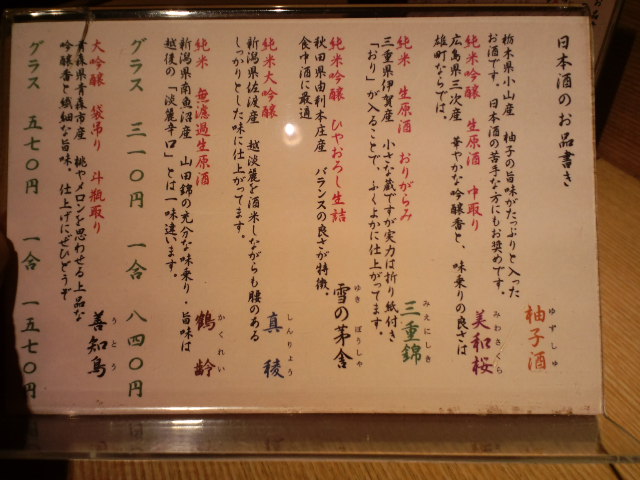 日本酒のお品書き
栃木県小山産 柚子の旨味がたっぷりと入った
お酒です。日本酒の苦手な方にもお奨めです。
柚子酒
ゆずしゅ
純米吟醸 生原酒 中取り
広島県三次産 華やかな吟醸香と、味乗りの良さは
雄町ならでは。
美和桜
みわさくら
純米 生原酒 おりがらみ
三重県伊賀産 小さな蔵ですが実力は折り紙付き
「おり」が入ることで、ふくよかに仕上がってます。
三重錦
みえにしき
純米吟醸 ひやおろし生詰
秋田県由利本荘産 バランスの良さが特徴。
食中酒に最適
雪の茅舎
ゆき ぼうしゃ
純米大吟醸
新潟県佐渡産 越淡麗を酒米しながらも腰のある
しっかりとした味に仕上がってます。
真稜
しんりょう
純米 無濾過生原酒
新潟県南魚沼産 山田錦の十分な味乗り・旨味は
越後の「淡麗辛口」とは一味違います。
鶴齢
かくれい
グラス 三一〇円 一合 八四〇円
大吟醸 袋吊り 斗瓶取り
青森県青森市産 桃やメロンを思わせる上品な
吟醸香と繊細な旨味。仕上げにぜひどうぞ
善知鳥
うとう
グラス 五七〇円 一合 一五七〇円